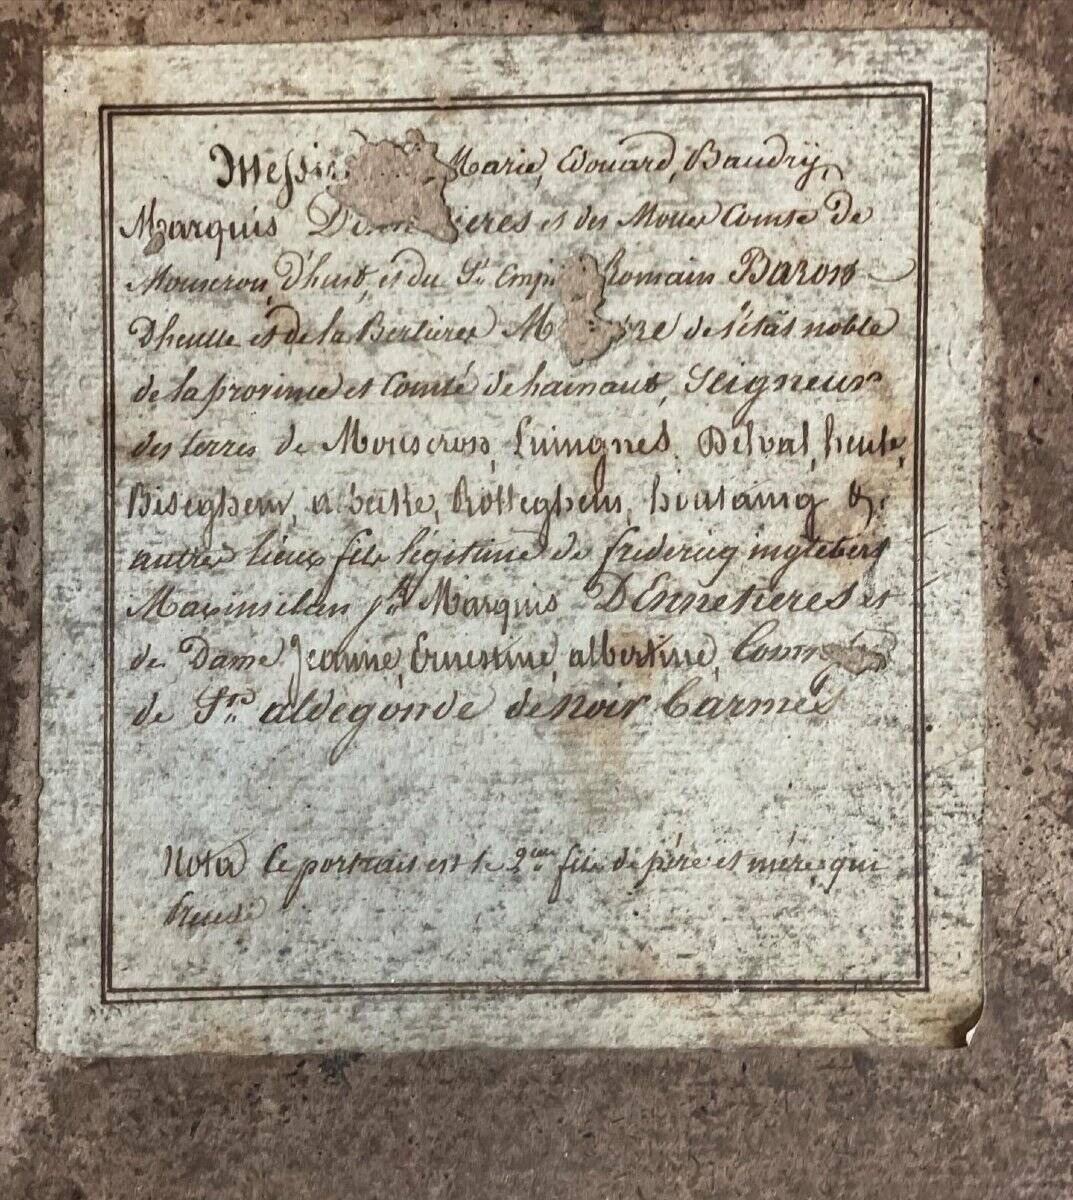 Messire Marie, Edouard, Baudry,
Marquis D'Ennetieres et des Mottes Comte de
Mouscron, D'hust, et du St Empire Romain Baron
Dheulle et de la Berliere M bre de l'état noble
de la province et Comté de hainaut, Seigneur
des terres de Mouscron, Luingnes, Delval, heule,
Biseghem, Rolleghem, houtaing &c
autres lieux fils légitime de fredericq inglebert
Maximilian Jh Marquis DEnnetieres et
de Dame Jeanne, Ernestine, albertine, Comtesse
de Ste aldegonde de Noir Carmes
Nota Ce portrait est le 2me fils de père et mère qui